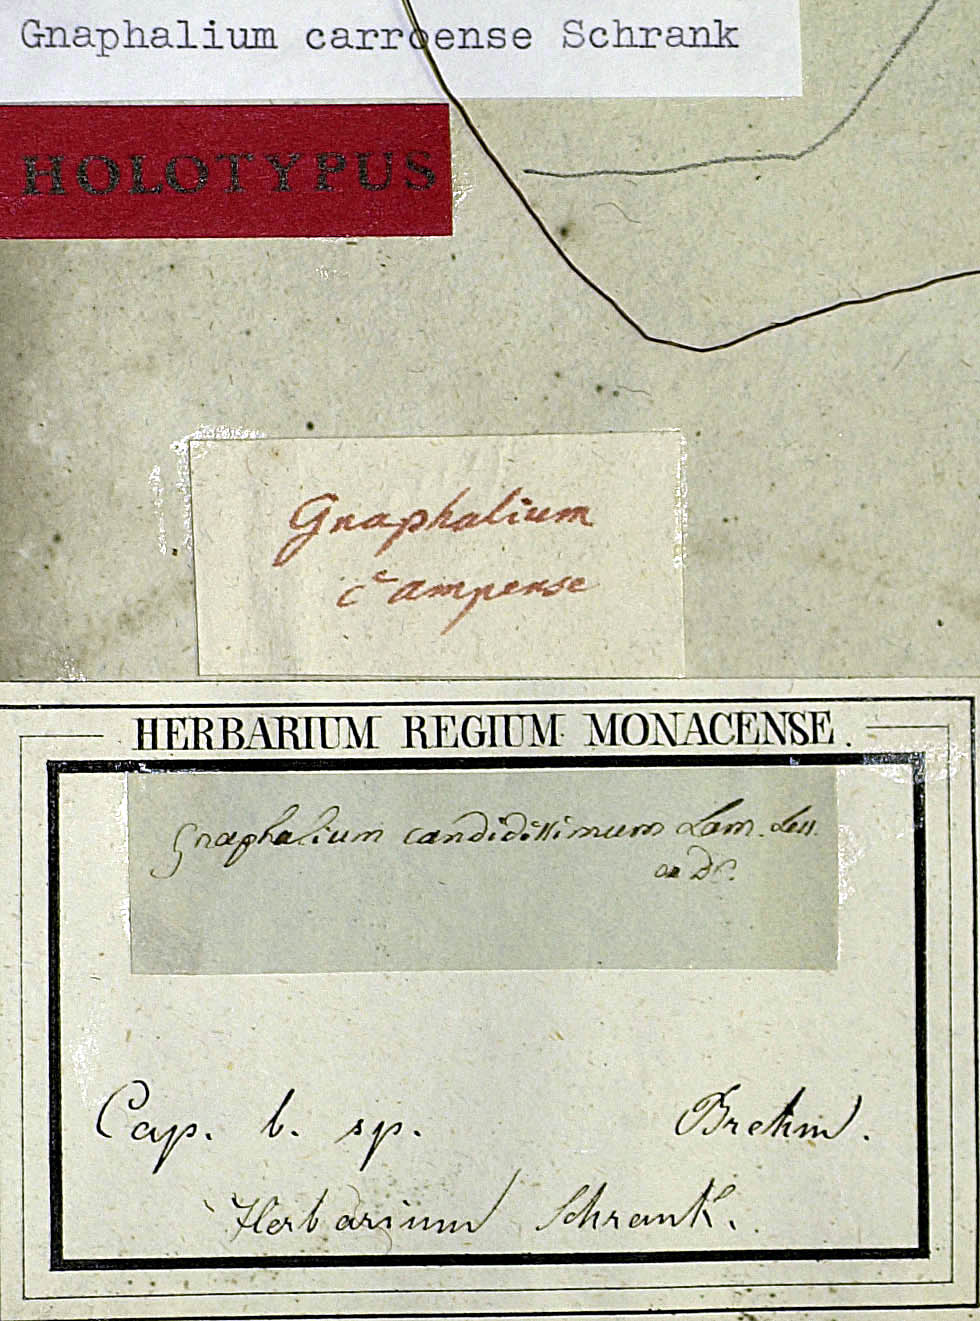 Gnaphalium carroense Schrank
HOLOTYPUS
Gnaphalium
campense
HERBARIUM REGIUM MONACENSE.
Gnaphalium candidissimum Lam. Less.
DC.
Cap. b. sp. Brehm.
Herbarium Schrank.